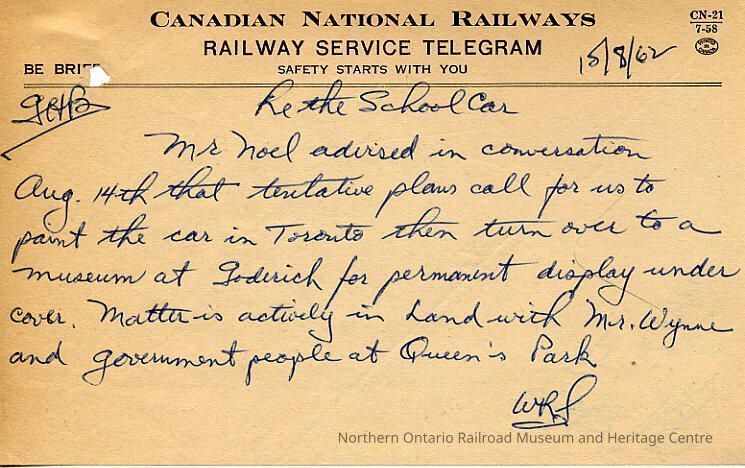 CANADIAN NATIONAL RAILWAYS
CN-21
7-58
RAILWAY SERVICE TELEGRAM
BE BRIEF
SAFETY STARTS WITH YOU
15/8/62
Re the School Car
Mr Noel advised in conversation
Aug. 14th that tentative plans call for us to
paint the car in Toronto then turn over to a
museum at Goderich for permanent display under
cover. Matter is actively in hand with Mr. Wynne
and government people at Queen's Park
Northern Ontario Railroad Museum and Heritage Centre